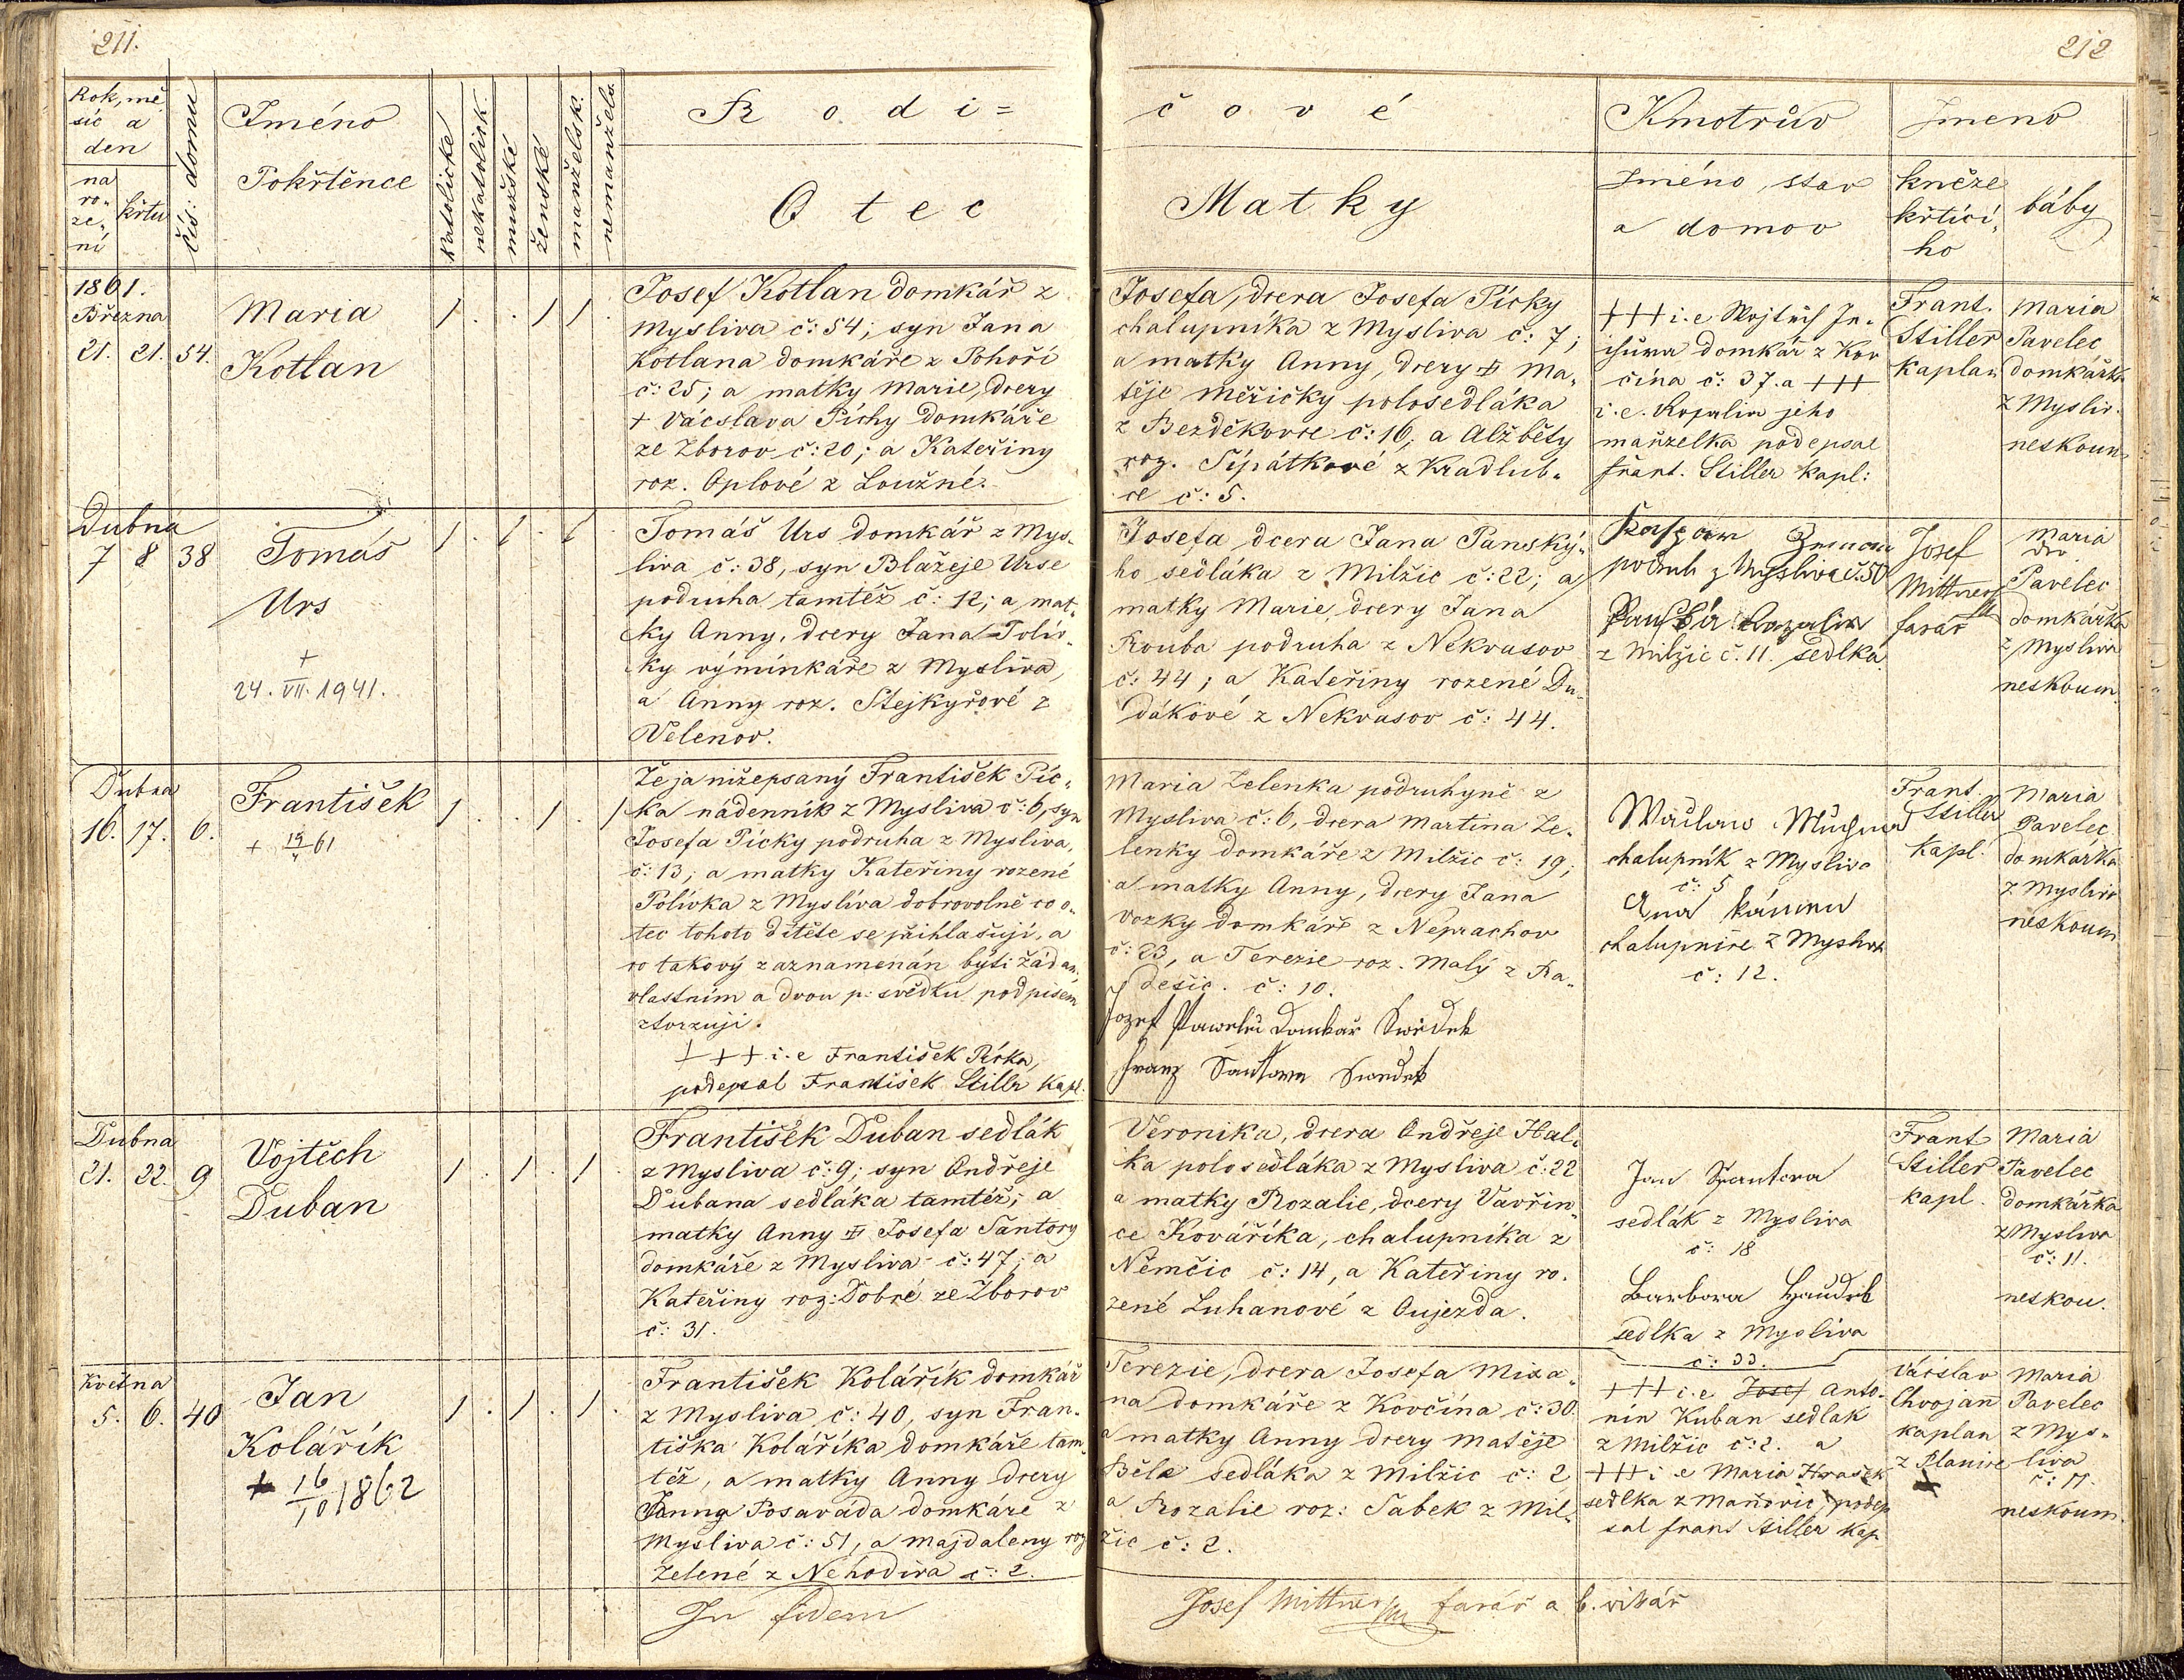 211.
212
Rok, mě
síc a
den
na
ro-
ze-
ní
křtu
čís: domu
Jméno
Pokřtěnce
katolické
nekatolick.
mužské
ženské
manželsk.
nemanžels.
R o d i =
O t e c
č o v é
Matky
Kmotrův
Jméno, stav
a domov
Jmeno
kněze
křtící-
ho
báby
1861.
Března
21. 21. 54.
Maria
Kotlan
1 . . 1 1 .
Josef Kotlan domkář z
Mysliva č: 54; syn Jana
Kotlana domkáře z Pohoří
č: 25; a matky Marie, dcery
+ Václava Píchy domkáře
ze Zborov č: 20; a Kateřiny
roz. Oplové z Loužné.
Josefa, dcera Josefa Pícky
chalupníka z Mysliva č: 7;
a matky Anny, dcery + Ma-
těje Měřičky polosedláka
z Bezděkovce č: 16, a Alžběty
roz. Šípátkové z Kradlub-
ce č: 5.
+++ i. e Wojtěch
domkář z Kov
čína č: 37. a +++
i. e. Rozalia jeho
manželka podepsal
frant. Stiller kapl:
Frant.
Stiller
Kaplan
Maria
Pavelec
domkářka
z Mysliv.
neskoum
Dubna
7 8 38
Tomáš
Urs
+
24. VII. 1941.
1 . 1 . 1
Tomáš Urs domkář z Mys-
liva č: 38, syn Blažeje Urse
podruha tamtéž č: 12; a mat-
ky Anny, dcery Jana Polív-
ky výminkáře z Mysliva,
a Anny roz. Stejkyřové z
Velenov.
Josefa dcera Jana Panský-
ho sedláka z Milžic č: 22; a
matky Marie, dcery Jana
Kouba podruha z Nekvasov
č: 44; a Kateřiny rozené Du-
dákové z Nekvasov č: 44.
podruh z Mysliva č. 50
Rozalia
z Milžic č. 11. sedlka
Josef
Mittner
farář
Maria
Pavelec
domkářka
z Mysliva
neskoum.
Dubna
16. 17. 6.
František
+ 19/4 61
1 . . 1 . 1
Že ja nížepsaný František Píc-
ka nádenník z Mysliva č: 6, syn
Josefa Pícky podruha z Mysliva,
č: 13; a matky Kateřiny rozené
Polívka z Mysliva dobrovolně co o-
tec tohoto dítěte se přihlašuji, a
co takový zaznamenán býti žádám
vlastním a dvou p: svědku podpisem
stvrzuji.
+++ i. e František Pícka,
podepsal František Stiller Kapl.
Maria Zelenka podruhyně z
Mysliva č: 6, dcera Martina Ze-
lenky domkáře z Milžic č: 19;
a matky Anny, dcery Jana
Vozky domkáře z Neprachov
č: 23, a Terezie roz. Malý z Ra-
dešic. č: 10.
Jozef Pawelec Domkař Swědek
Franz Santora Swědek
Waclaw
chalupník z Mysliva
č: 5
chalupnice z Mysliva
č: 12.
Frant.
Stiller
kapl.
Maria
Pavelec
domkářka
z Mysliva
neskoum
Dubna
21. 22. 9
Vojtěch
Duban
1 . 1 . 1 .
František Duban sedlák
z Mysliva č: 9; syn Ondřeje
Dubana sedláka tamtéž; a
matky Anny + Josefa Šantory
domkáře z Mysliva č: 47; a
Kateřiny roz: Dobré ze Zborov
č: 31.
Veronika, dcera Ondřeje Hal-
ka polosedláka z Mysliva č: 22
a matky Rozalie, dcery Vavřin-
ce Kováříka, chalupníka z
Němčic č: 14, a Kateřiny ro-
zené Luhanové z Oujezda.
Jan Šantora
sedlák z Mysliva
č: 18
Barbora
sedlka z Mysliva
č: 33.
Frant
Stiller
kapl.
Maria
Pavelec
domkářka
z Mysliva
č: 11.
neskou.
Května
5. 6. 40
Jan
Kolářík
+ 16/10 1862
1 . 1 . 1 .
František Kolářík domkář
z Mysliva č: 40, syn Fran-
tiška Koláříka domkáře tam-
též, a matky Anny dcery
Posaváda domkáře z
Mysliva č: 51, a Majdaleny roz
Zelené z Nehodiva č: 2.
Terezie, dcera Josefa Mixa-
na domkáře z Kovčína č: 30.
a matky Anny dcery Matěje
Běle sedláka z Milžic č: 2
a Rozalie roz: Šabek z Mil-
žic č: 2.
+++ i. e Josef Anto-
nín Kuban sedlak
z Milžic č: 2. a
+++ i e Maria Hrašek
sedlka z Maňovic, podep
sal frant Stiller kap.
Václav
Chvojan
kaplan
z Planice
+
Maria
Pavelec
z Mys-
liva
č: 11.
neskoum.
In fidem
Josef Mittner farář a b. vikář